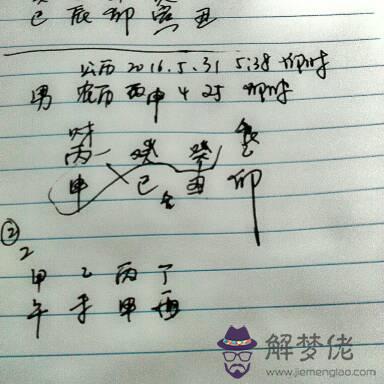 巳 辰 卯 寅 丑
公历 2016.5.31 5:38 卯时
男 农历 丙申 4 25 卯时
财
丙 癸 癸
申 巳 丑 卯
②
2
甲 乙 丙 丁
午 申
解梦佬
www.jiemenglao.com